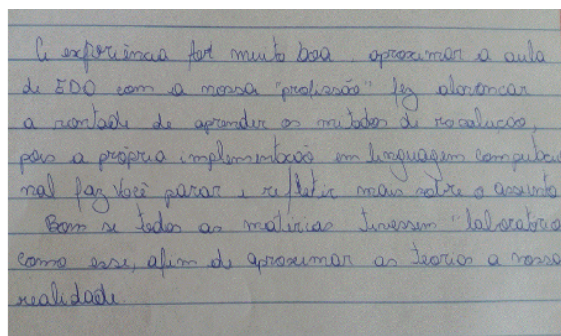 A experiência foi muito boa, aproximar a aula
de EDO com a nossa "profissão" fez alavancar
a vontade de aprender os métodos de resolução,
pois a própria implementação em linguagem computacio
nal faz você parar e refletir mais sobre o assunto
Bom se todas as matérias tivessem "laboratório
como esse, afim de aproximar as teorias a nossa
realidade.